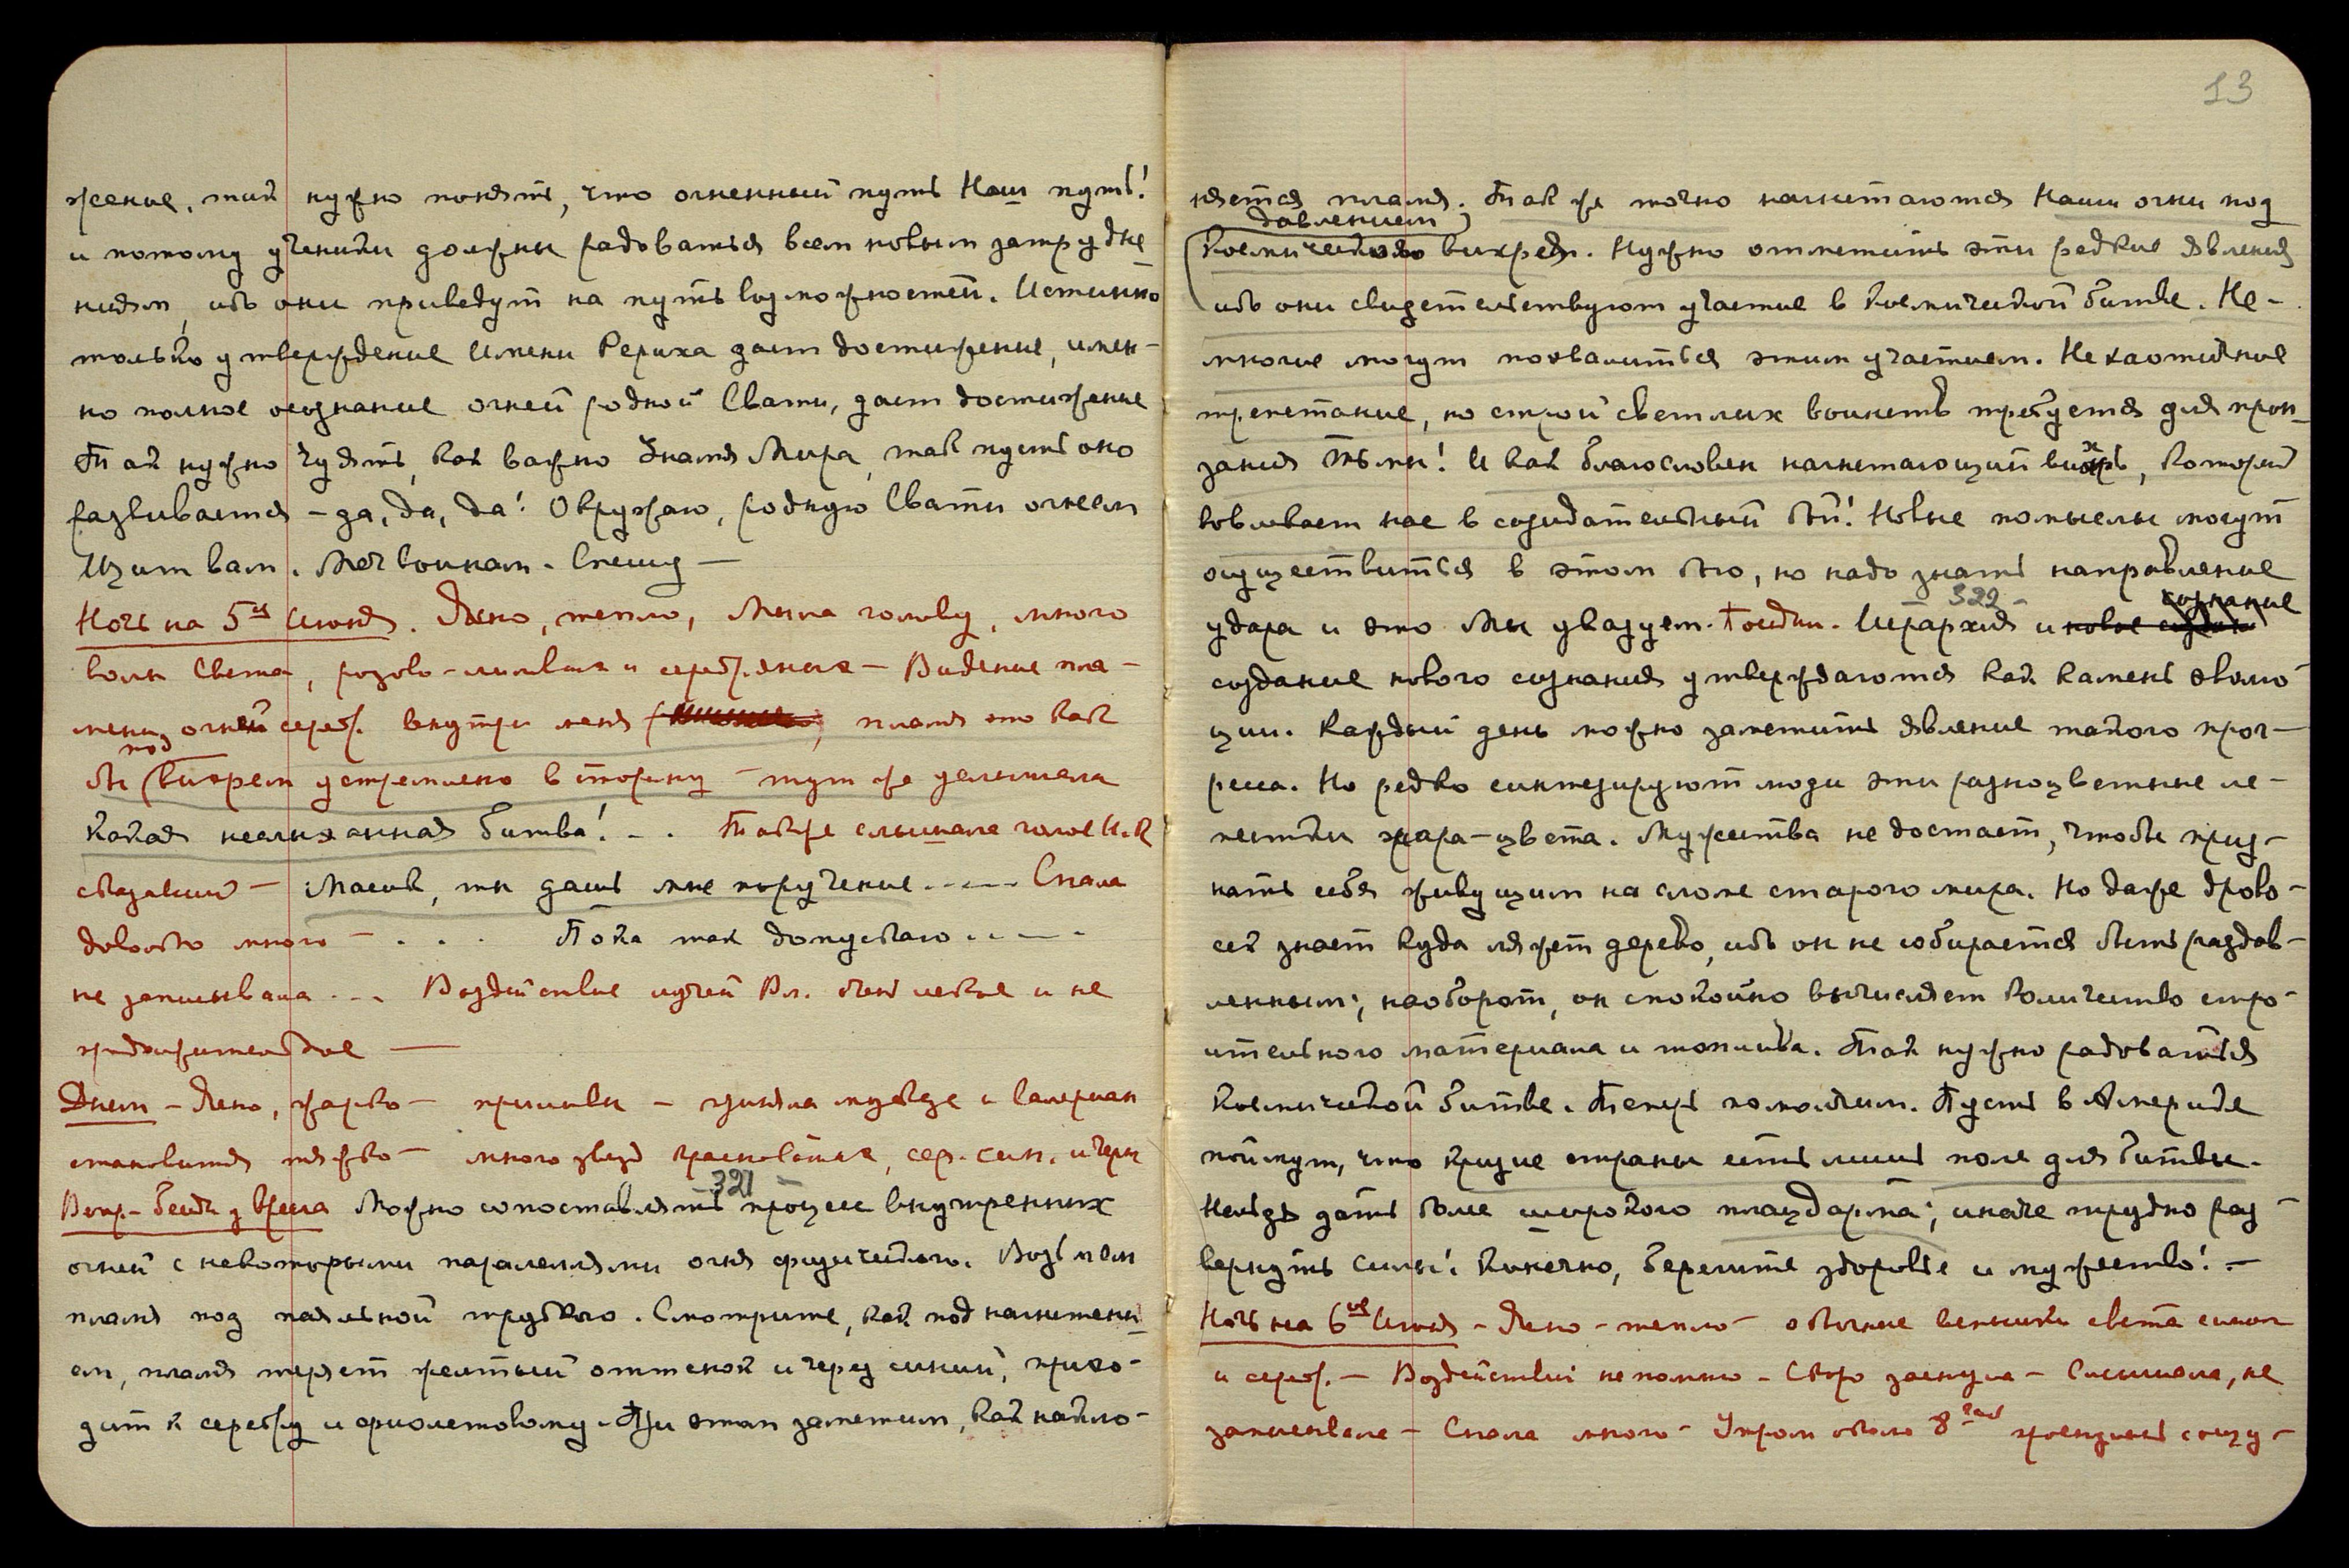 жение, так нужно понять, что огненный путь Наш путь!
и потому ученики должны радоваться всем новым затрудне
ниям, ибо они приведут на путь возможностей. Истинно
только утверждение Имени Рериха дает достижение, имен-
но полное осознание огней родной Свати, дает достижение
Так нужно чуять, как важно Знамя Мира, так пусть оно
развивается – да, да, да! Окружаю, родную Свати огнем
Щит вам. Меч воинам. Спешу —
Ночь на 5ое Июня. Ясно, тепло, Мыла голову, много
волн Света, розово-лиловых и серебряных – Видение пла-
мени, огней сереб. внутри меня, пламя это как
бы под вихрем устремлено в сторону – тут же услышала
Какая неслыханная битва! - . Также слышала голос Н.К
сказавший – Масик, ты дашь мне поручение ..-– Спала
довольно много – . . . Пока так допускаю ..-–-
не записывала ... Воздействие лучей Вл. очень легкое и не
продолжительное —
Днем – Ясно, жарко – приливы – приняла мускус и валериан
становится тяжко – много звезд красноватых, сер. син. и черн
Вечер. – Беседа у Кресла Можно сопоставлять процесс внутренних
321 –
огней с некоторыми паралелями огня физического. Возьмем
пламя под паяльной трубкою. Смотрите, как под нагнетени
ем, пламя теряет желтый оттенок и через синий, прихо-
дит к серебру и фиолетовому. При этом заметим, как накло-
13
няется пламя. Так же точно нагнетаются Наши огни под
давлением
Космического вихря. Нужно отметить эти редкие явления
ибо они свидетельствуют участие в Космической битве. Не-
многие могут похвалиться этим участием. Не хаотичное
трепетание, но строй светлых воинств требуется для прон-
зания тьмы! И как благословен нагнетающий вихрь, который
вовлекает нас в созидательный бой! Новые помыслы могут
осуществиться в этом бою, но надо знать направление
– 322 – сознание
удара и это Мы указуем. Иерархия и новое
создание нового сознания утверждаются как камень эволю-
ции. Каждый день можно заметить явление такого прог-
ресса. Но редко синтезируют люди эти разноцветные ле-
пестки жара-цвета. Мужества не достает, чтобы приз-
нать себя живущим на сломе старого мира. Но даже дрово-
сек знает куда ляжет дерево, ибо он не собирается быть раздав-
ленным; наоборот, он спокойно вычисляет количество стро-
ительного материала и топлива. Так нужно радоваться
Космической битве. Теперь помолчим. Пусть в Америке
поймут, что кризис страны есть лишь поле для битвы.
Нельзя дать более широкого плацдарма; иначе трудно раз-
вернуть силы! Конечно, берегите здоровье и мужество! –
Ночь на 6ое Июня – Ясно – тепло – обычные вспышки света синег
и сереб. – Воздействий не помню – Скоро заснула – Слышала, не
записывала – Спала много – Утром около 8 час проснулась с ощу-